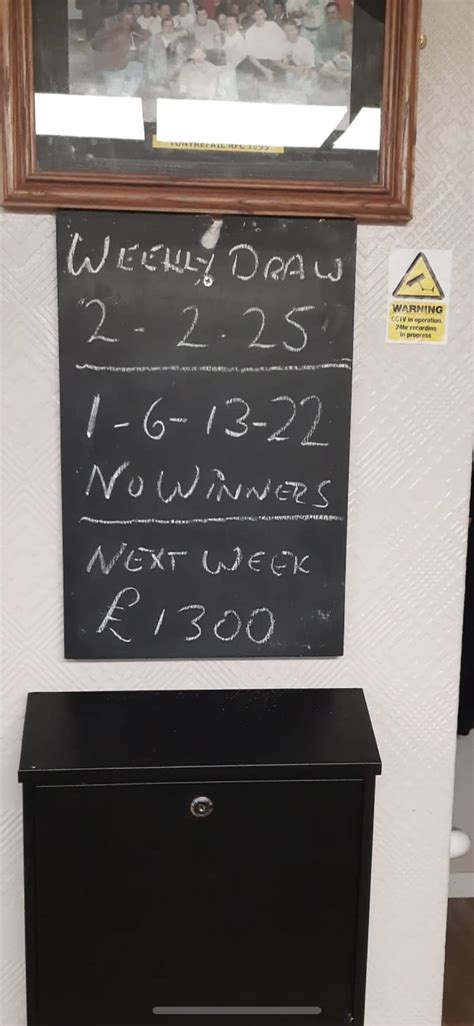 TONYREFAIL RFC 1995
WEEKLY DRAW
2-2-25
1-6-13-22
NO WINNERS
NEXT WEEK
£1300
WARNING
CCTV in operation.
24hr recording
in progress